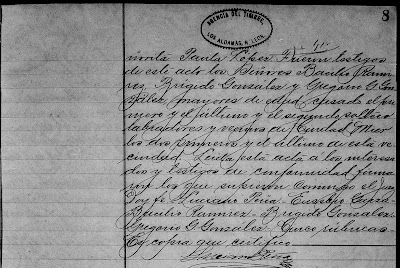 8
AGENCIA DEL TIMBRE,
LOS ALDAMAS, N. LEON.
ñorita Paula López. Fueron testigos
de este acto los Señores Basilio Rami
rez, Brigido Gonzalez y Gregorio G. Gon
zalez, mayores de edad, casado el pri
mero y el último y el segundo soltero
labradores y vecinos de Ciudad Mier
los dos primeros y el último de esta ve
cindad. Leida esta acta a los interesa
dos y testigos de conformidad firma
ron los que supieron
Doy fe Luciano Peña
Basilio Ramirez - Brigido Gonzalez
Gregorio G. Gonzalez. Cinco rúbricas.
Es copia que certifico